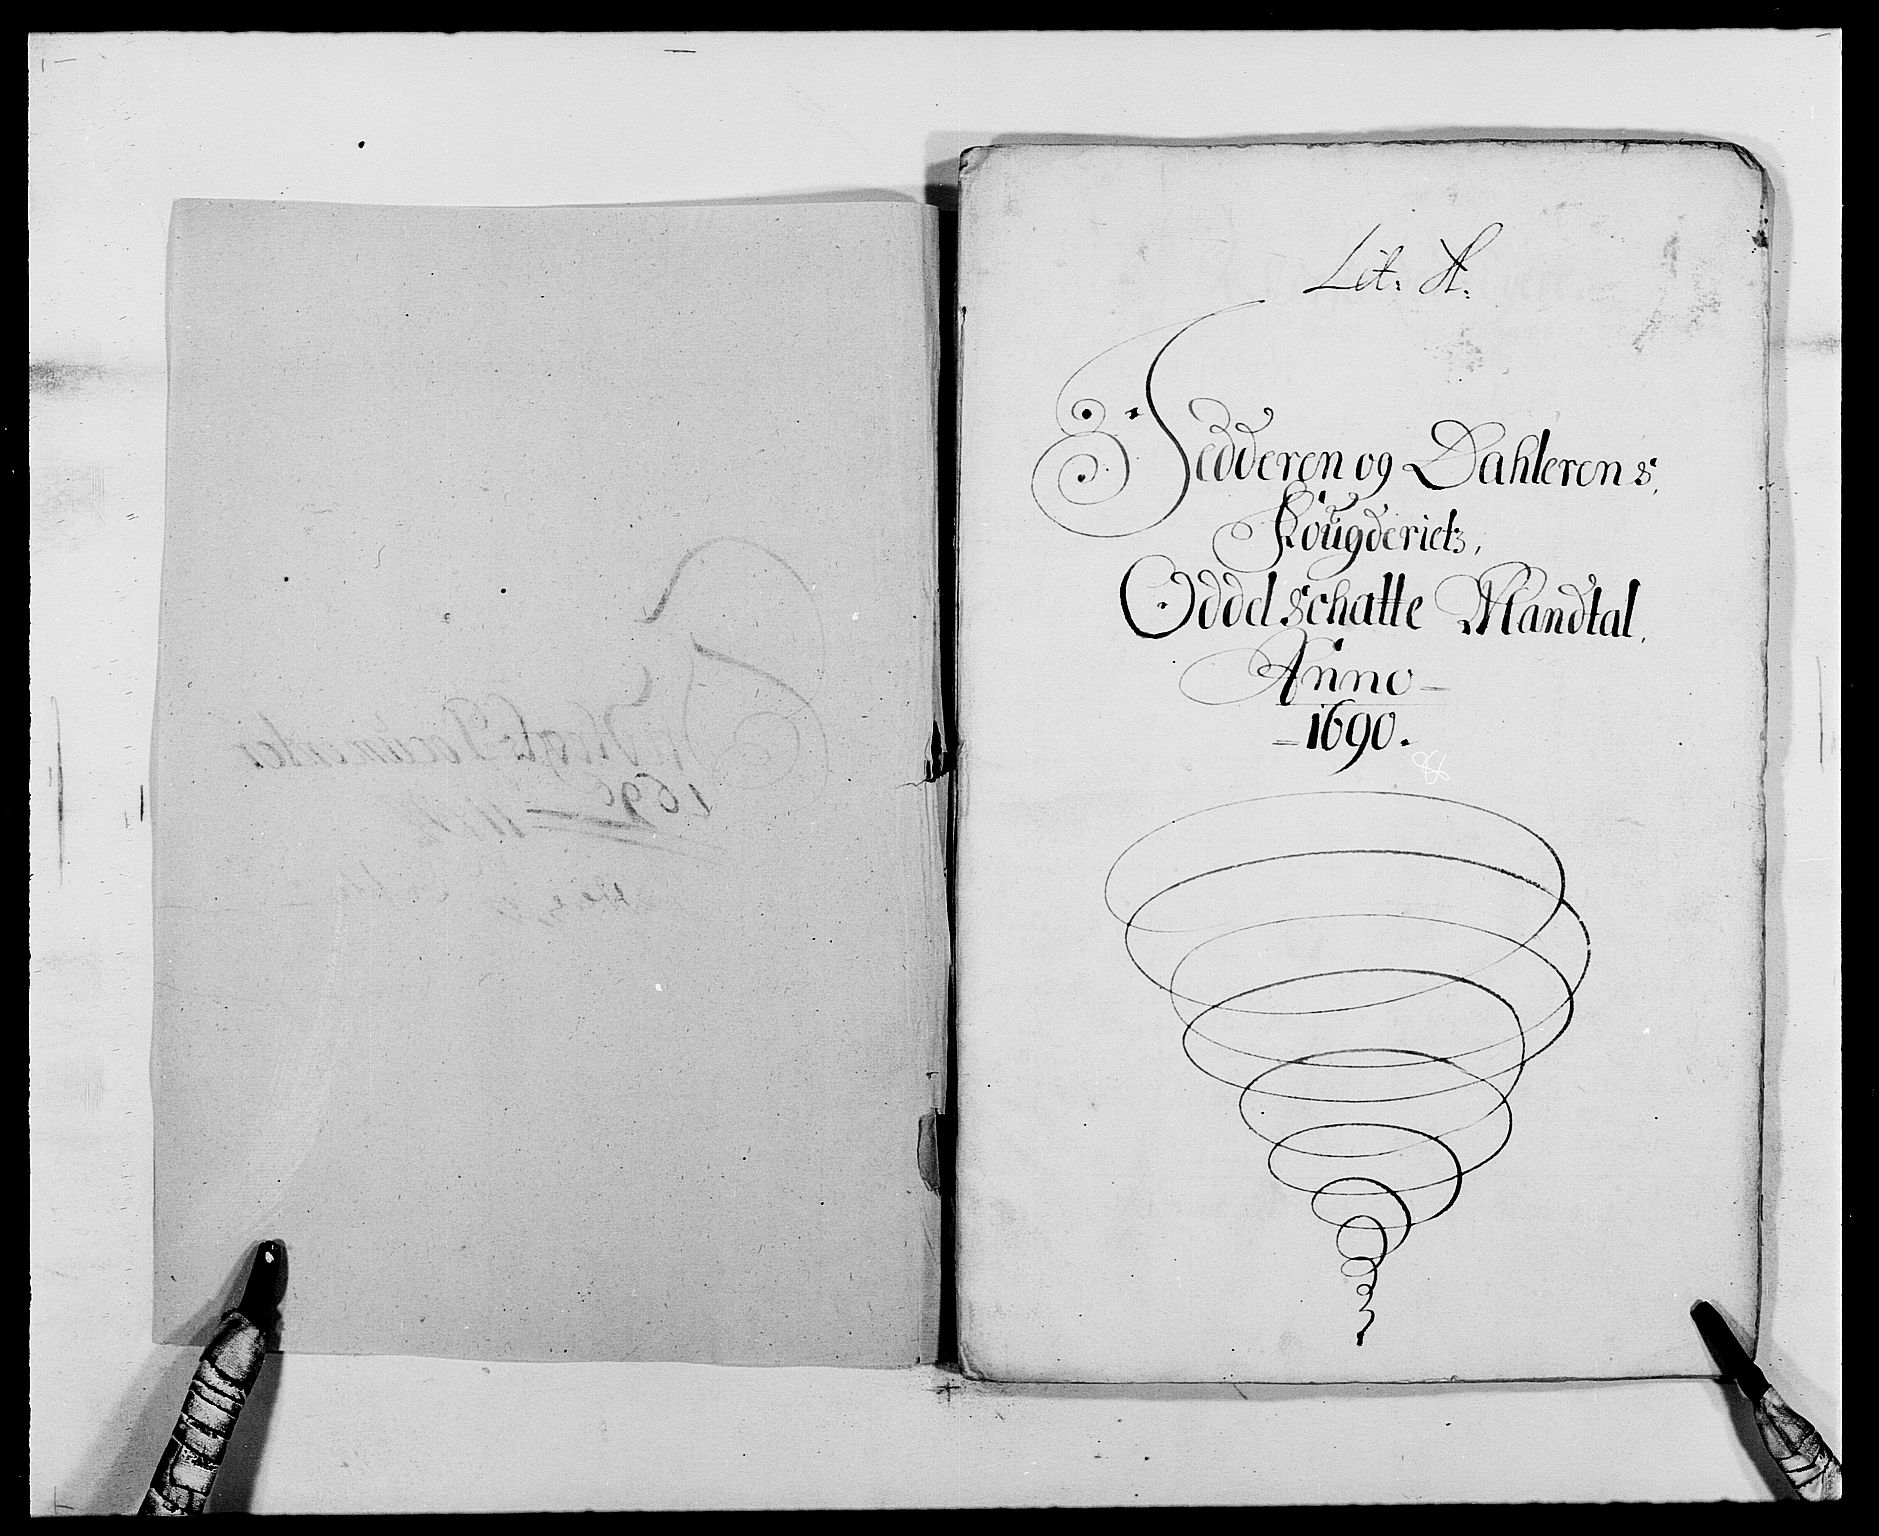 Lit. A.
Jedderen og Dahlerens,
Fougderiets,
Oddel schatte Mandtal,
Anno
1690.
Documenter
1690